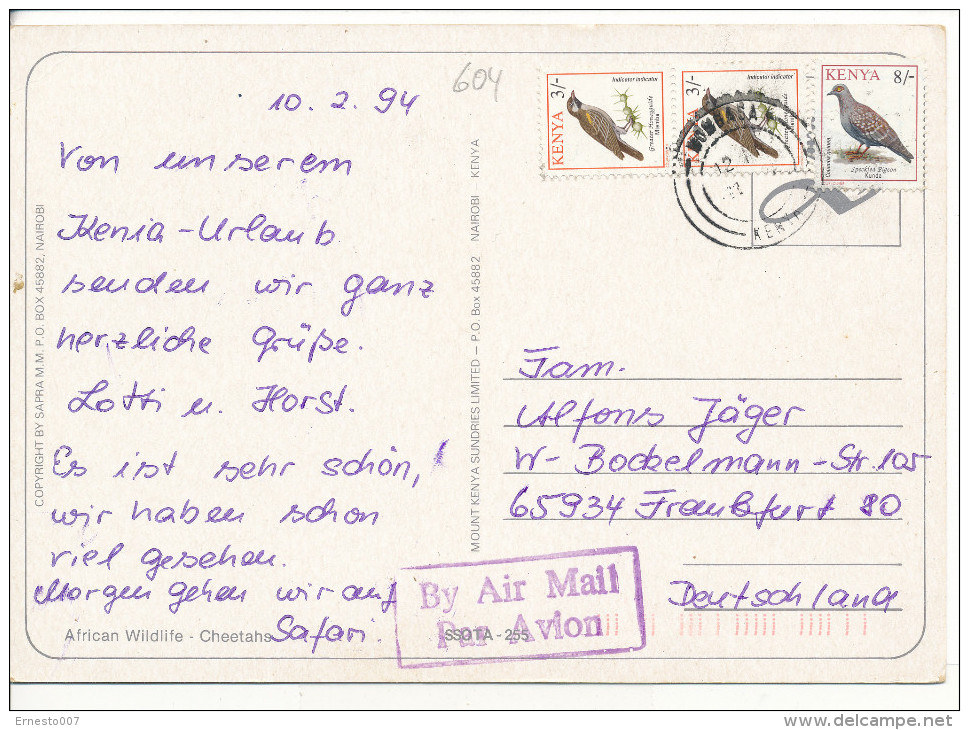 604
10. 2. 94
Von unserem
Kenia-Urlaub
senden wir ganz
herzliche Grüße.
Lotti u. Horst.
Es ist sehr schön,
wir haben schon
viel gesehen.
Morgen gehen wir auf
Safari.
African Wildlife - Cheetahs
COPYRIGHT BY SAPRA M.M. P.O. BOX 45882, NAIROBI
MOUNT KENYA SUNDRIES LIMITED — P.O. Box 45882 NAIROBI — KENYA
KENYA 3/-
Indicator indicator
Greater Honeyguide
KENYA 3/-
Indicator indicator
Greater Honeyguide
KENYA 8/-
Speckled Pigeon
Kunda
MOMBASA
12
KENYA
Fam.
Alfons Jäger
W-Bockelmann-Str. 105
65934 Frankfurt 80
Deutschland
By Air Mail
Par Avion
SSOTA - 255
Ernesto007
www.delcampe.net